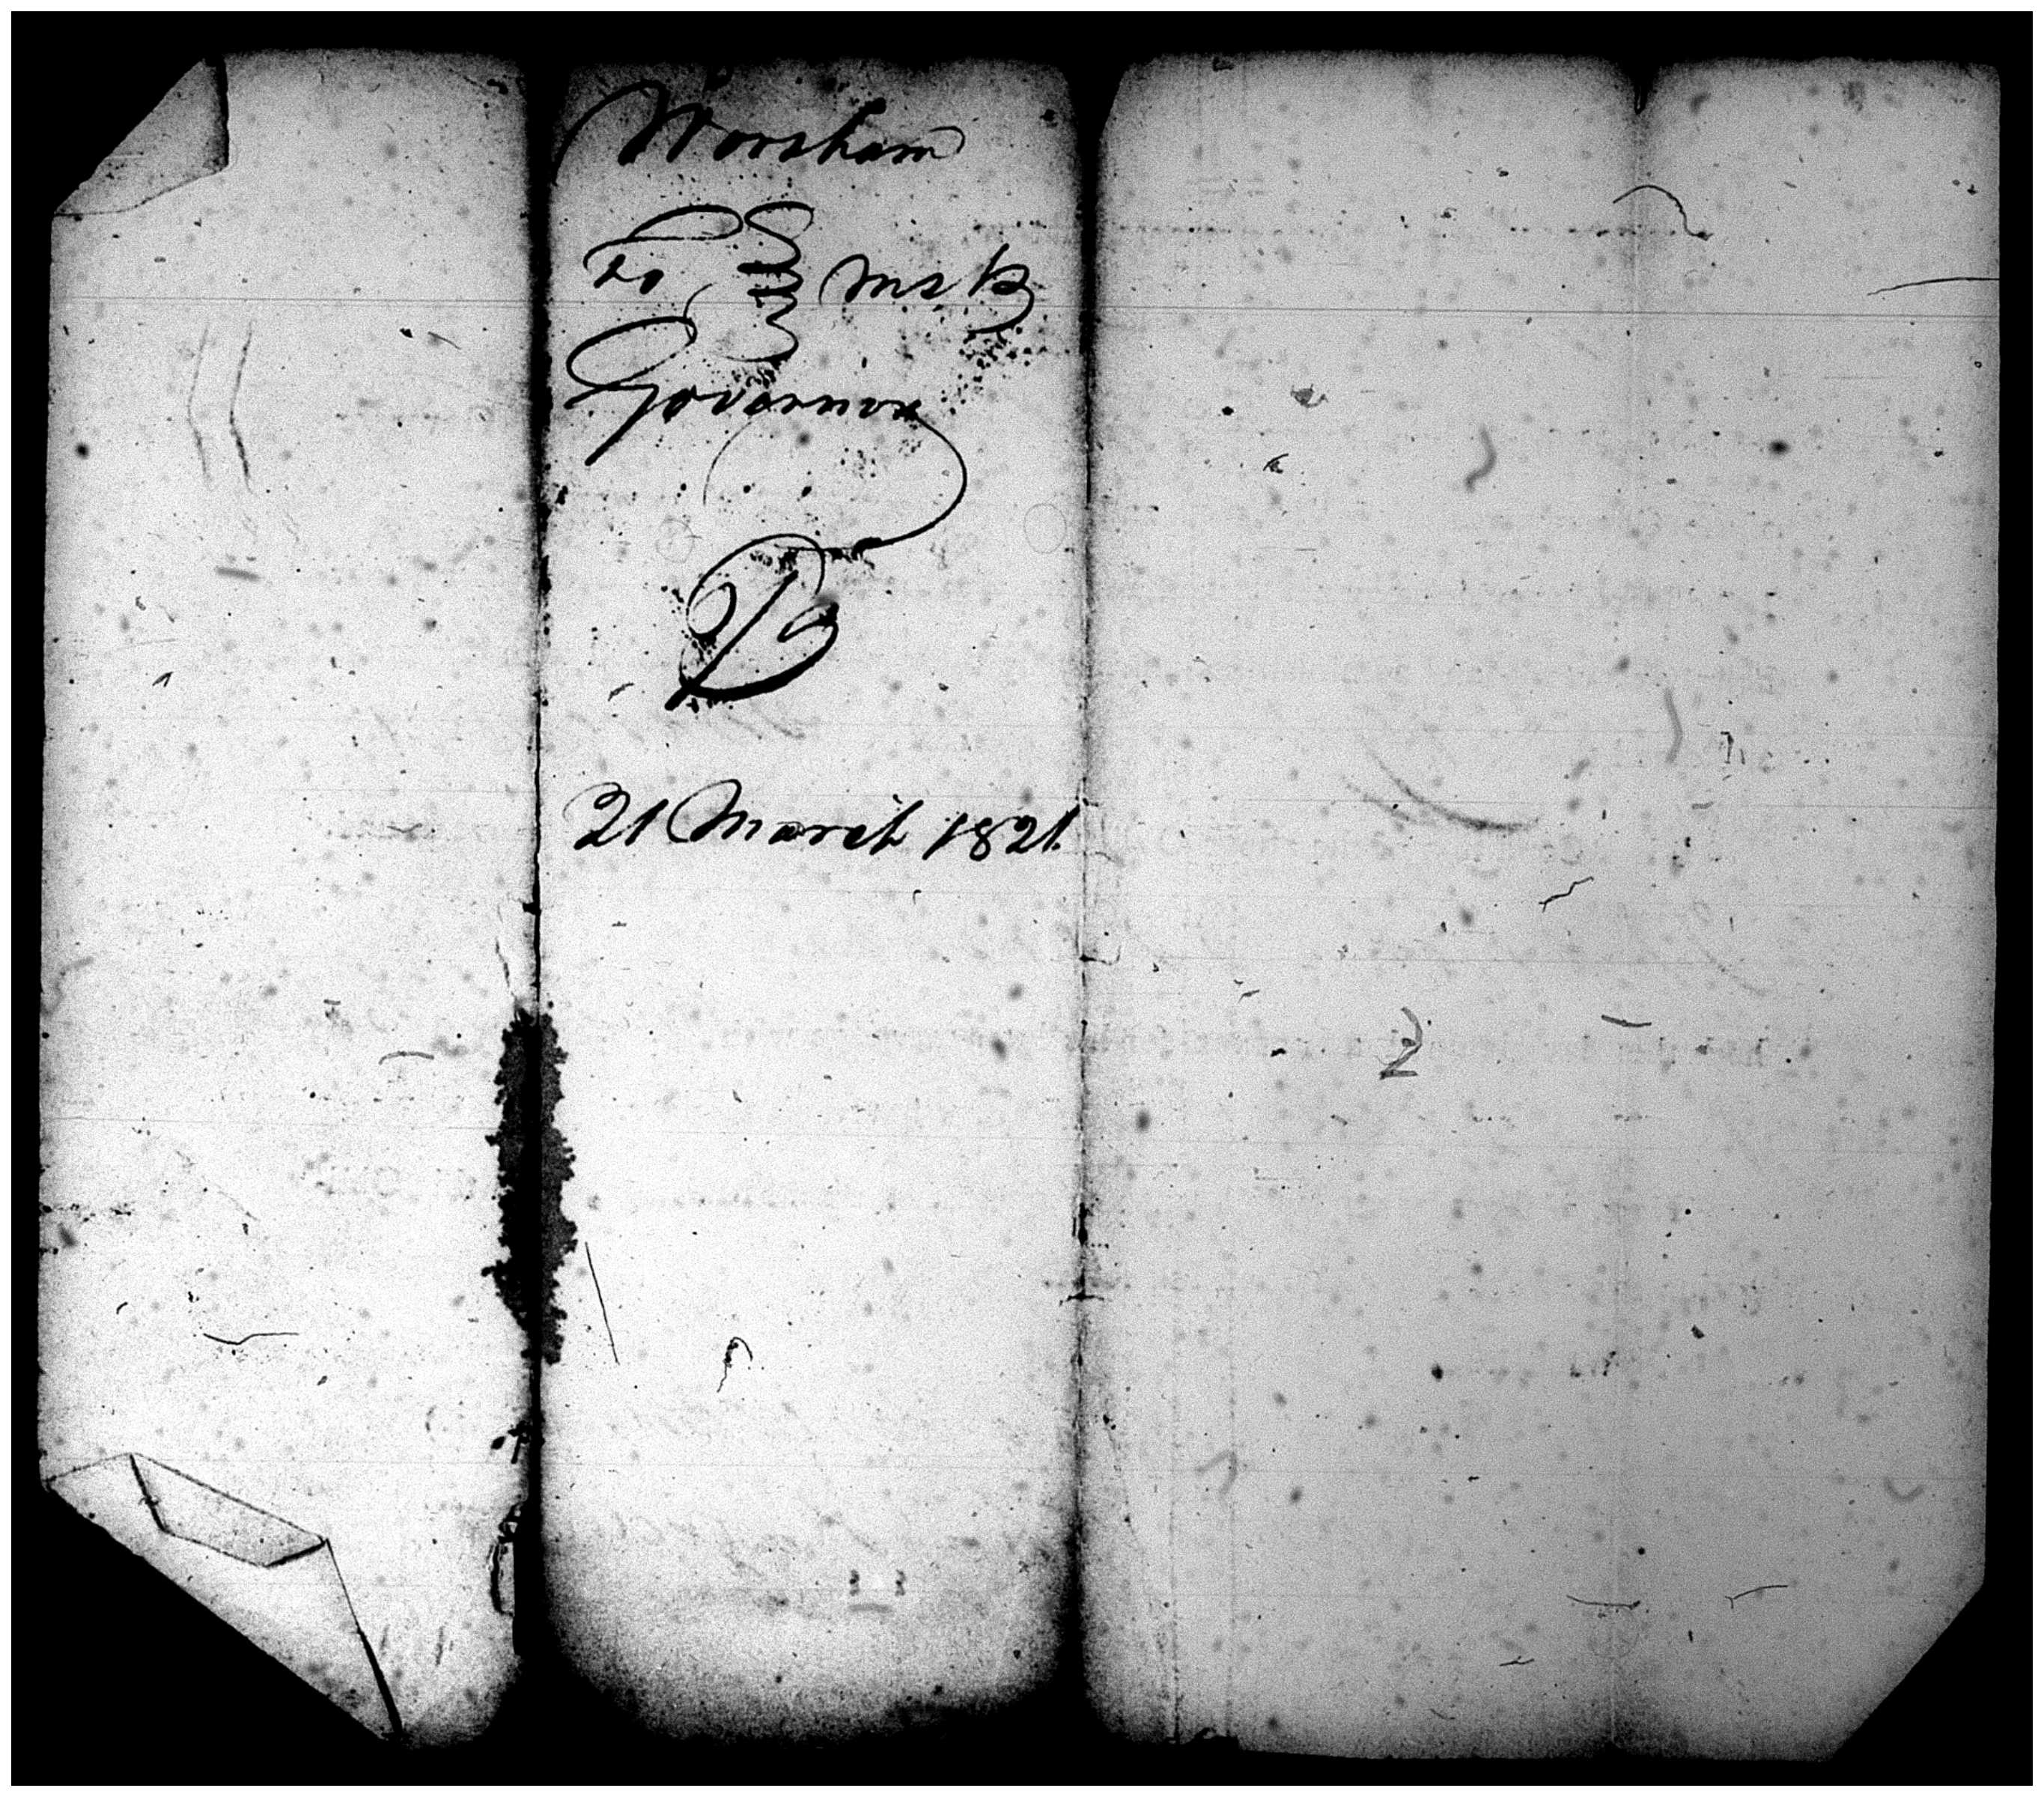 Worsham
To } ms B
Governor
B
21 March 1821.
2